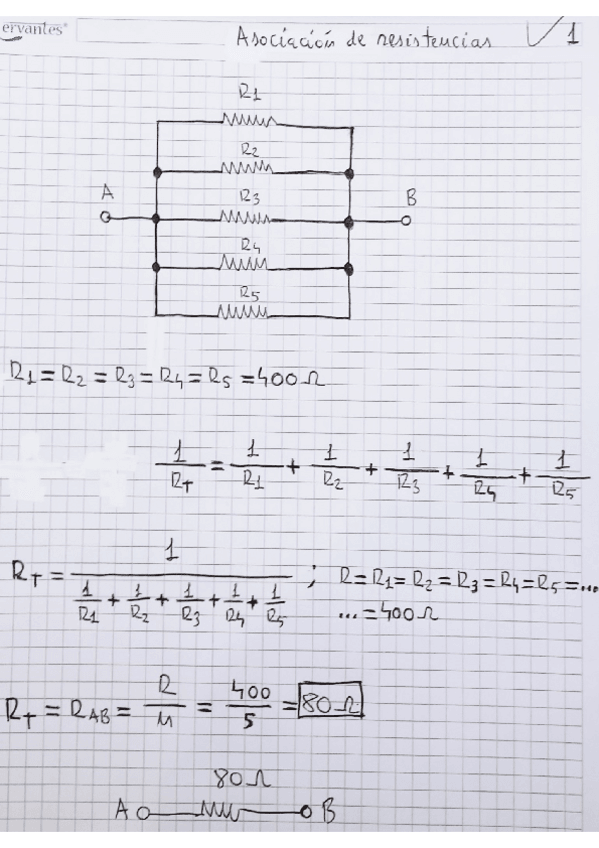 ervantes®
Asociación de resistencias 1
R1
R2
A R3 B
R4
R5
R1 = R2 = R3 = R4 = R5 = 400 Ω
1/RT = 1/R1 + 1/R2 + 1/R3 + 1/R4 + 1/R5
RT = 1/(1/R1 + 1/R2 + 1/R3 + 1/R4 + 1/R5) ; R = R1 = R2 = R3 = R4 = R5 = ...
... = 400 Ω
RT = RAB = R/n = 400/5 = 80 Ω
80 Ω
A B